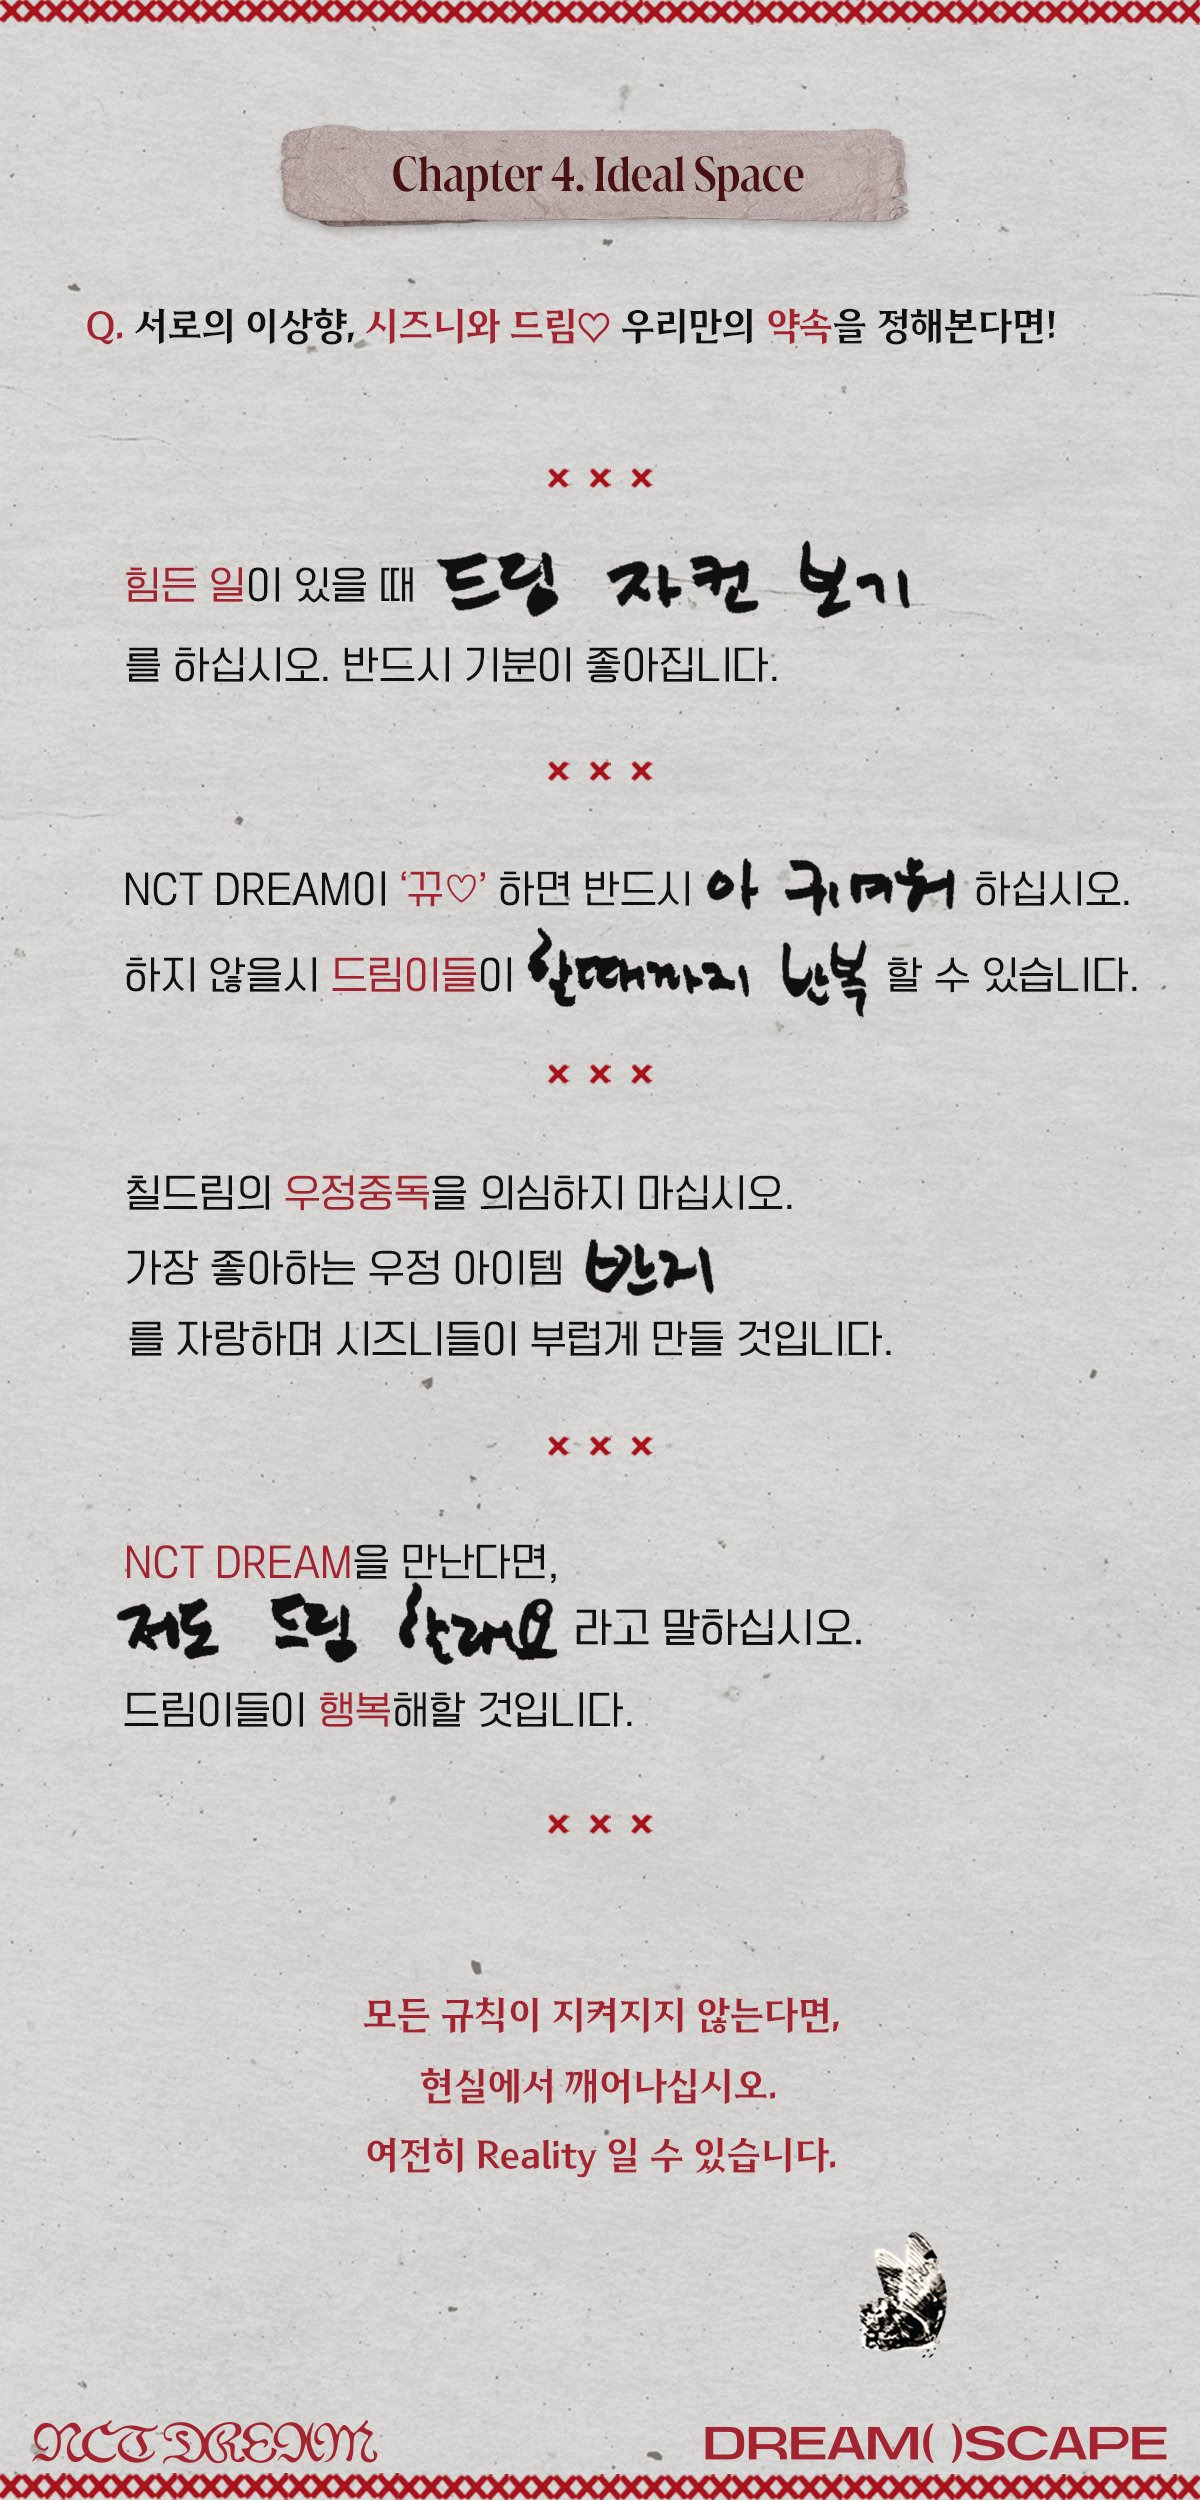 Chapter 4. Ideal Space
Q. 서로의 이상향, 시즈니와 드림♡ 우리만의 약속을 정해본다면!
× × ×
힘든 일이 있을 때 드림 자컨 보기
를 하십시오. 반드시 기분이 좋아집니다.
× × ×
NCT DREAM이 ‘뀨♡’ 하면 반드시 아 귀여워 하십시오.
하지 않을시 드림이들이 할때까지 반복 할 수 있습니다.
× × ×
칠드림의 우정중독을 의심하지 마십시오.
가장 좋아하는 우정 아이템 반지
를 자랑하며 시즈니들이 부럽게 만들 것입니다.
× × ×
NCT DREAM을 만난다면,
저도 드림 할래요 라고 말하십시오.
드림이들이 행복해할 것입니다.
× × ×
모든 규칙이 지켜지지 않는다면,
현실에서 깨어나십시오.
여전히 Reality 일 수 있습니다.
NCT DREAM DREAM( )SCAPE